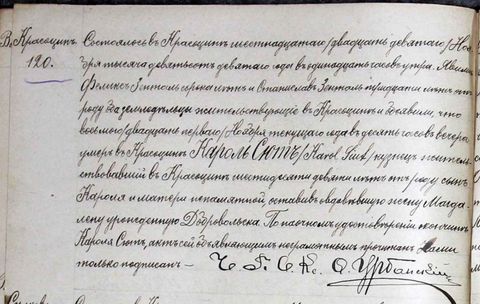 В. Красоцинъ
120.
Состоялось въ Красоцинѣ шестнадцатаго /двадцать девятаго/ Ноя-
бря тысяча девятьсотъ девятаго года въ одинадцать часовъ утра. Явились
Феликсъ сорока лѣтъ и Станиславъ тридцати лѣтъ отъ
роду оба земледѣльцы жительствующіе въ Красоцинѣ и объявили, что
восьмого /двадцать перваго/ Ноября текущаго года въ десять часовъ вечера
умеръ въ Красоцинѣ Кароль Сютъ /Karol Siut/ кузнецъ житель-
ствовавшій въ Красоцинѣ шестидесяти девяти лѣтъ отъ роду сынъ
Кароля и матери непамятной, оставивъ овдовѣвшую жену Магда-
лену урожденную Добровольска. По наочномъ удостовѣреніи о кончинѣ
Кароля Сютъ, актъ сей объявляющимъ неграмотнымъ прочитанъ Нами
только подписанъ —